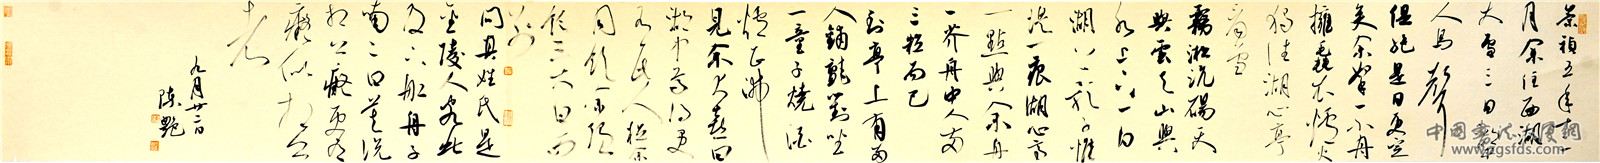 崇禎五年十二
月余住西湖
大雪三日湖中
人鳥聲
俱絕是日更定
矣余拏一小舟
擁毳衣爐火
獨往湖心亭
看雪
霧凇沆碭天
與雲與山與
水上下一白
湖上影子惟
長堤一痕湖心亭
一點與余舟
一芥舟中人兩
三粒而已
到亭上有兩
人鋪氈對坐
一童子燒酒
爐正沸
見余大喜曰
湖中焉得更
有此人拉余
同飲余強
飲三大白而
別
問其姓氏是
金陵人客此
及下船舟子
喃喃曰莫說
相公癡更有
癡似相公
者
九月廿二日
陳艷
www.zgsfds.com